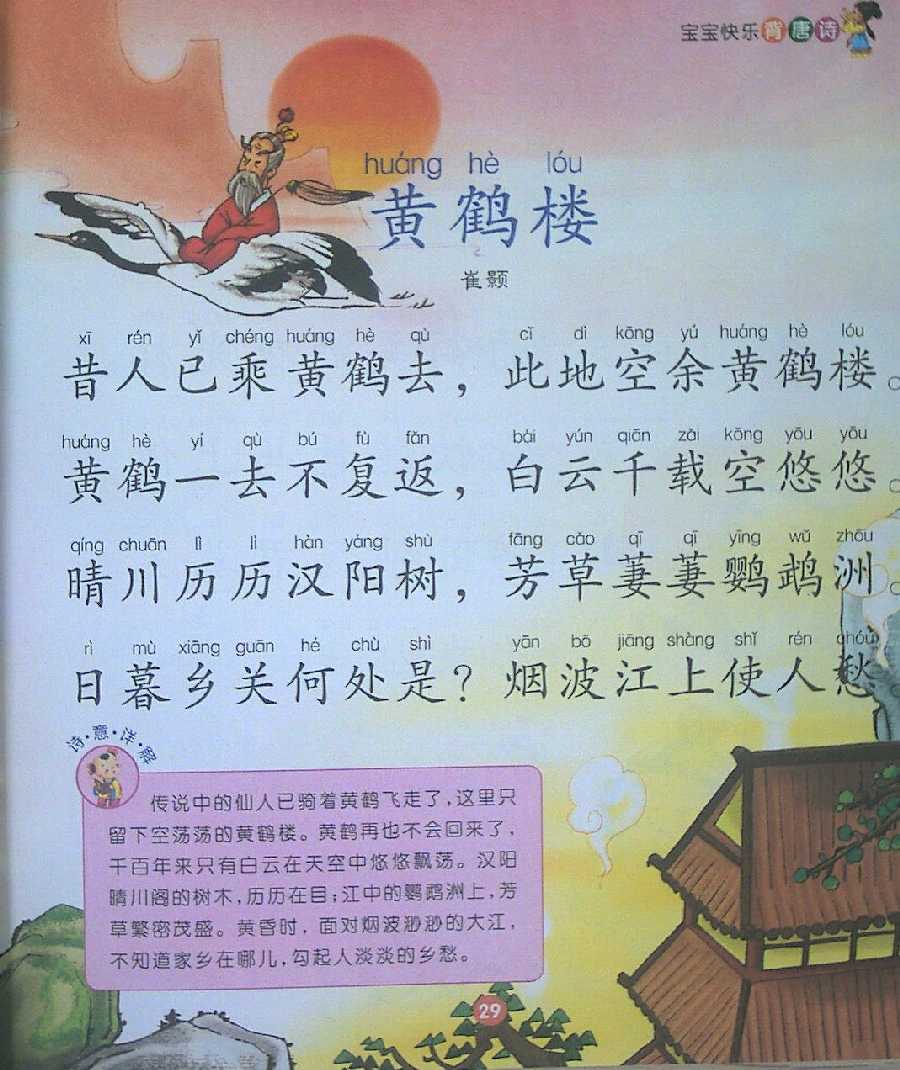 宝宝快乐背唐诗
huáng hè lóu
黄鹤楼
崔颢
xī rén yǐ chéng huáng hè qù cǐ dì kōng yú huáng hè lóu
昔人已乘黄鹤去，此地空余黄鹤楼。
huáng hè yí qù bú fù fǎn bái yún qiān zǎi kōng yōu yōu
黄鹤一去不复返，白云千载空悠悠。
qíng chuān lì lì hàn yáng shù fāng cǎo qī qī yīng wǔ zhōu
晴川历历汉阳树，芳草萋萋鹦鹉洲。
rì mù xiāng guān hé chù shì yān bō jiāng shàng shǐ rén chóu
日暮乡关何处是？烟波江上使人愁
诗·意·详·解
传说中的仙人已骑着黄鹤飞走了，这里只
留下空荡荡的黄鹤楼。黄鹤再也不会回来了，
千百年来只有白云在天空中悠悠飘荡。汉阳
晴川阁的树木，历历在目；江中的鹦鹉洲上，芳
草繁密茂盛。黄昏时，面对烟波渺渺的大江，
不知道家乡在哪儿，勾起人淡淡的乡愁。
29